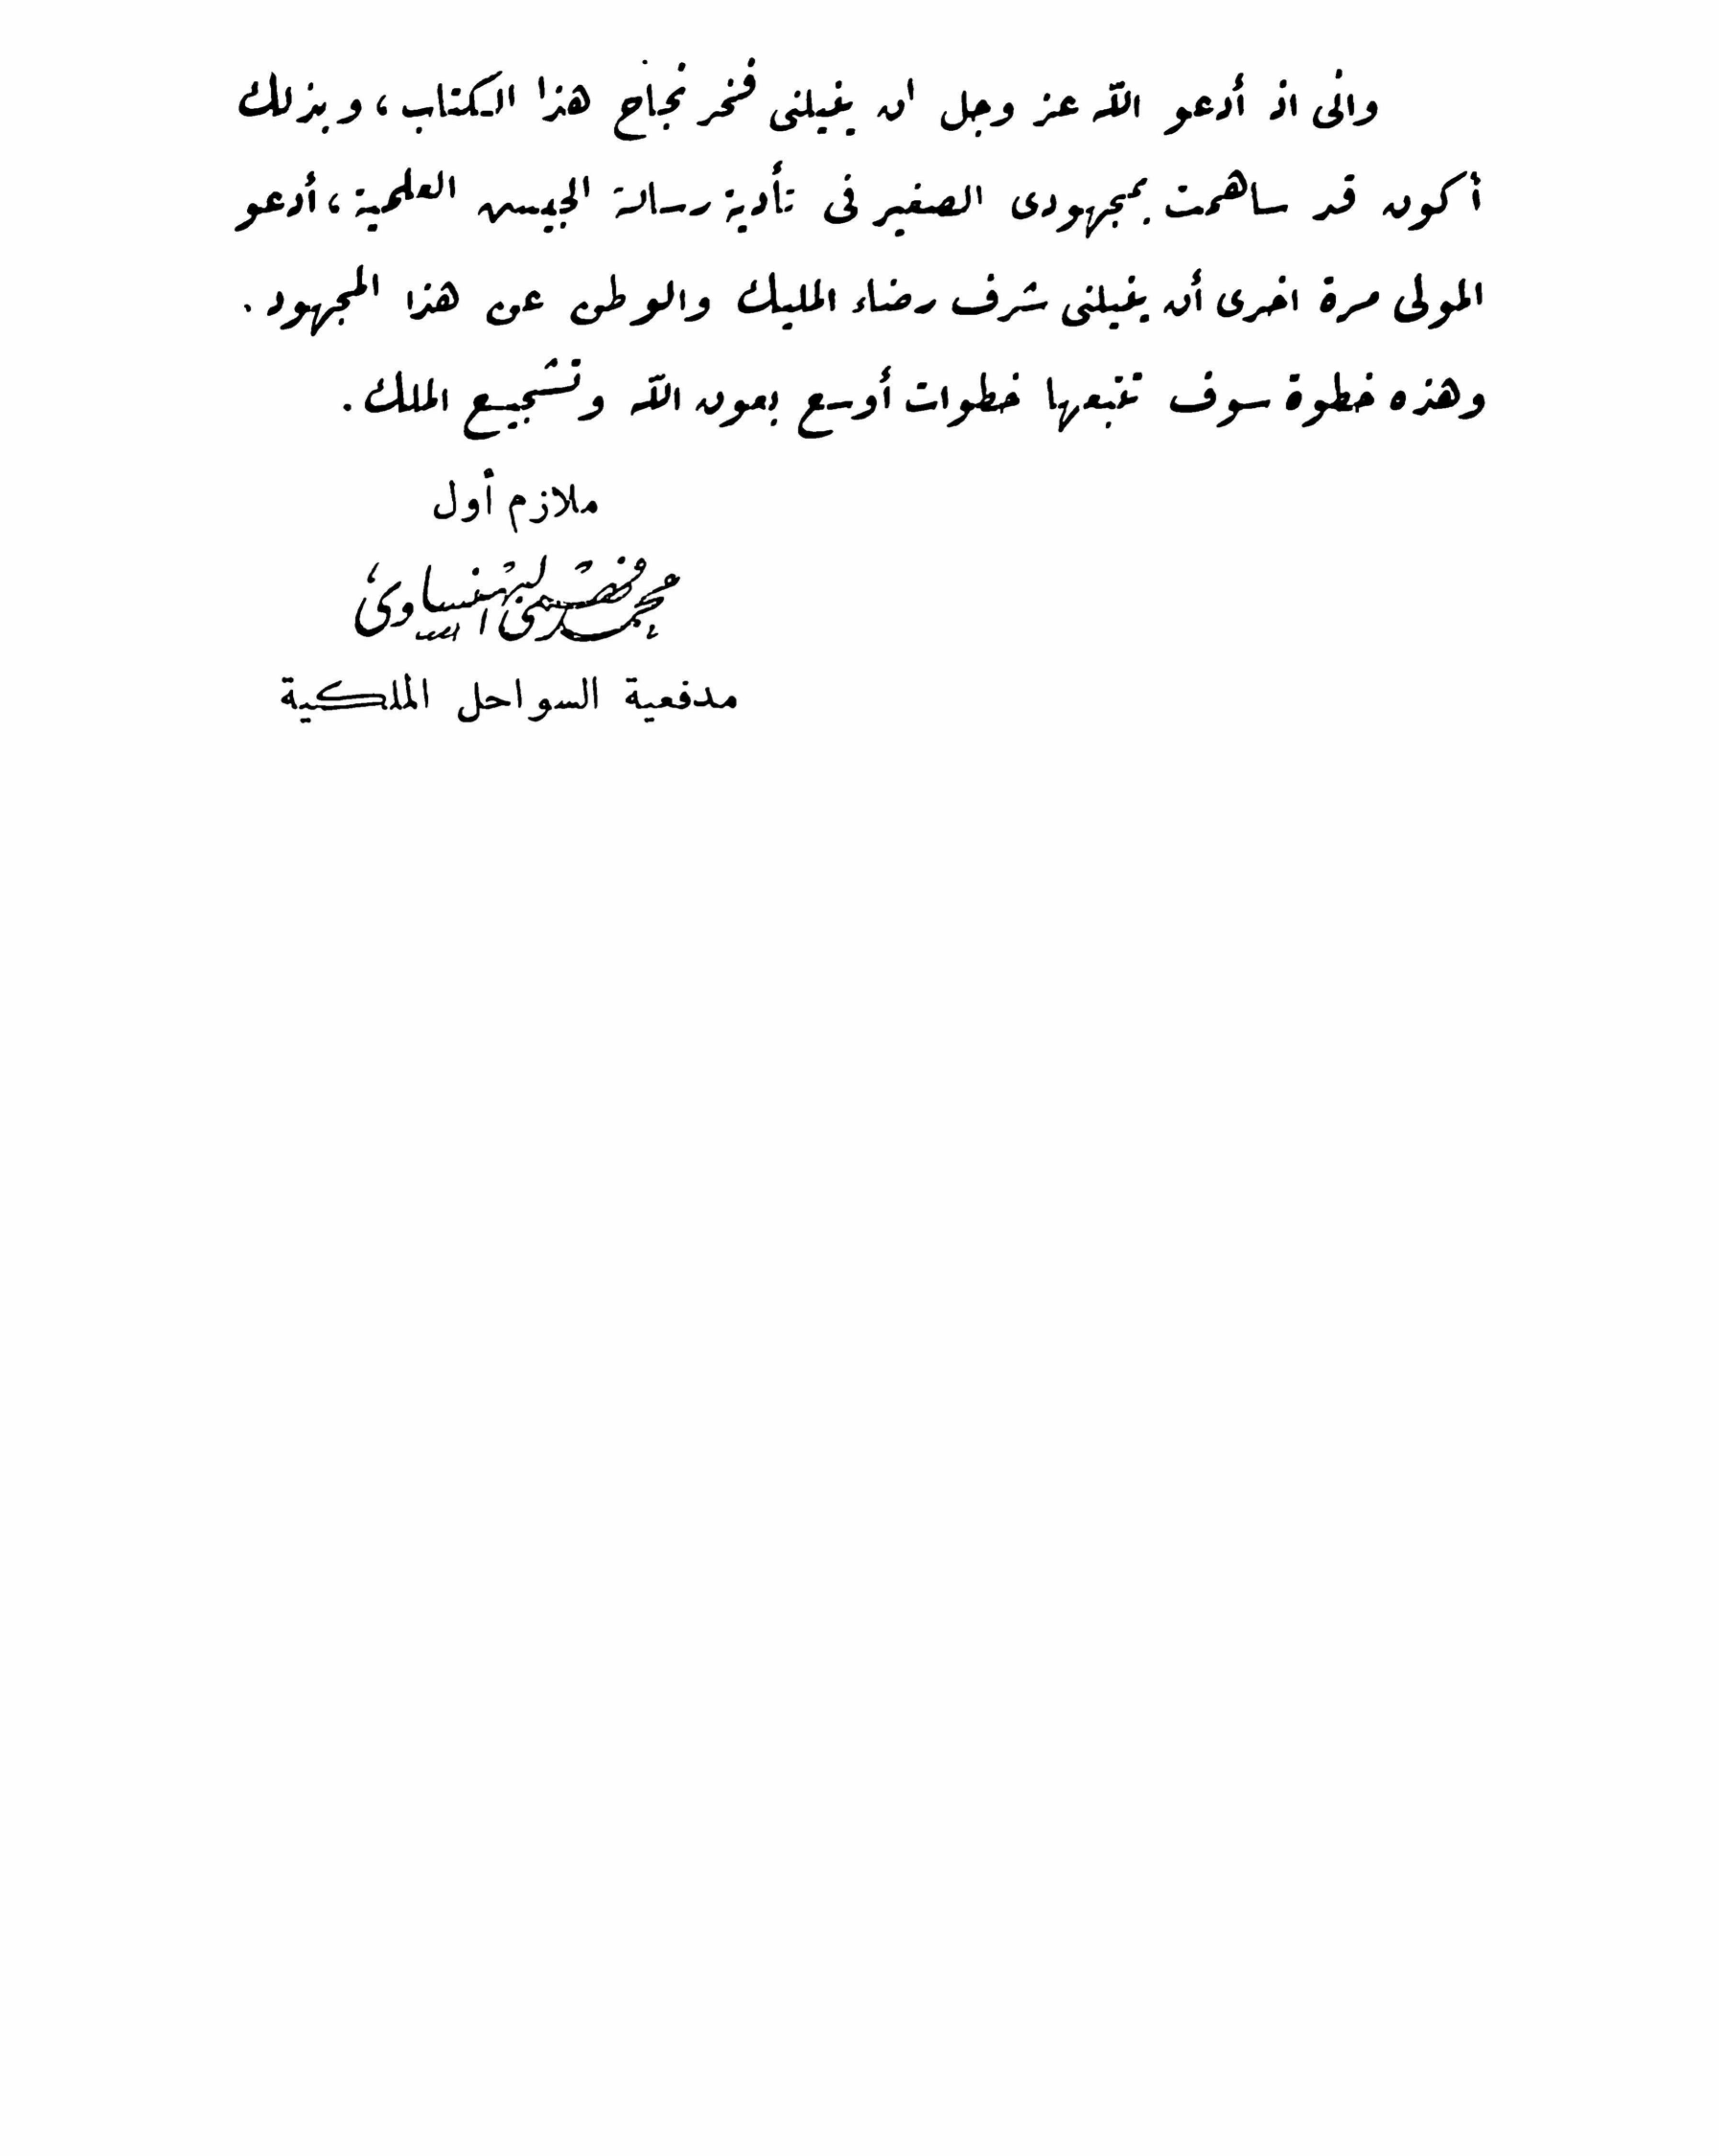 وانى اذ أدعو الله عز وجل ان ينيلنى فخر نجاح هذا الكتاب، وبذلك
أكون قد ساهمت بمجهودى الصغير فى تأدية رسالة الجيش العلمية، أدعو
المولى مرة اخرى أن ينيلنى شرف رضاء المليك والوطن عن هذا المجهود.
وهذه خطوة سوف تتبعها خطوات أوسع بعون الله وتشجيع الملك.
ملازم أول
محمد البهنساوى
مدفعية السواحل الملكية